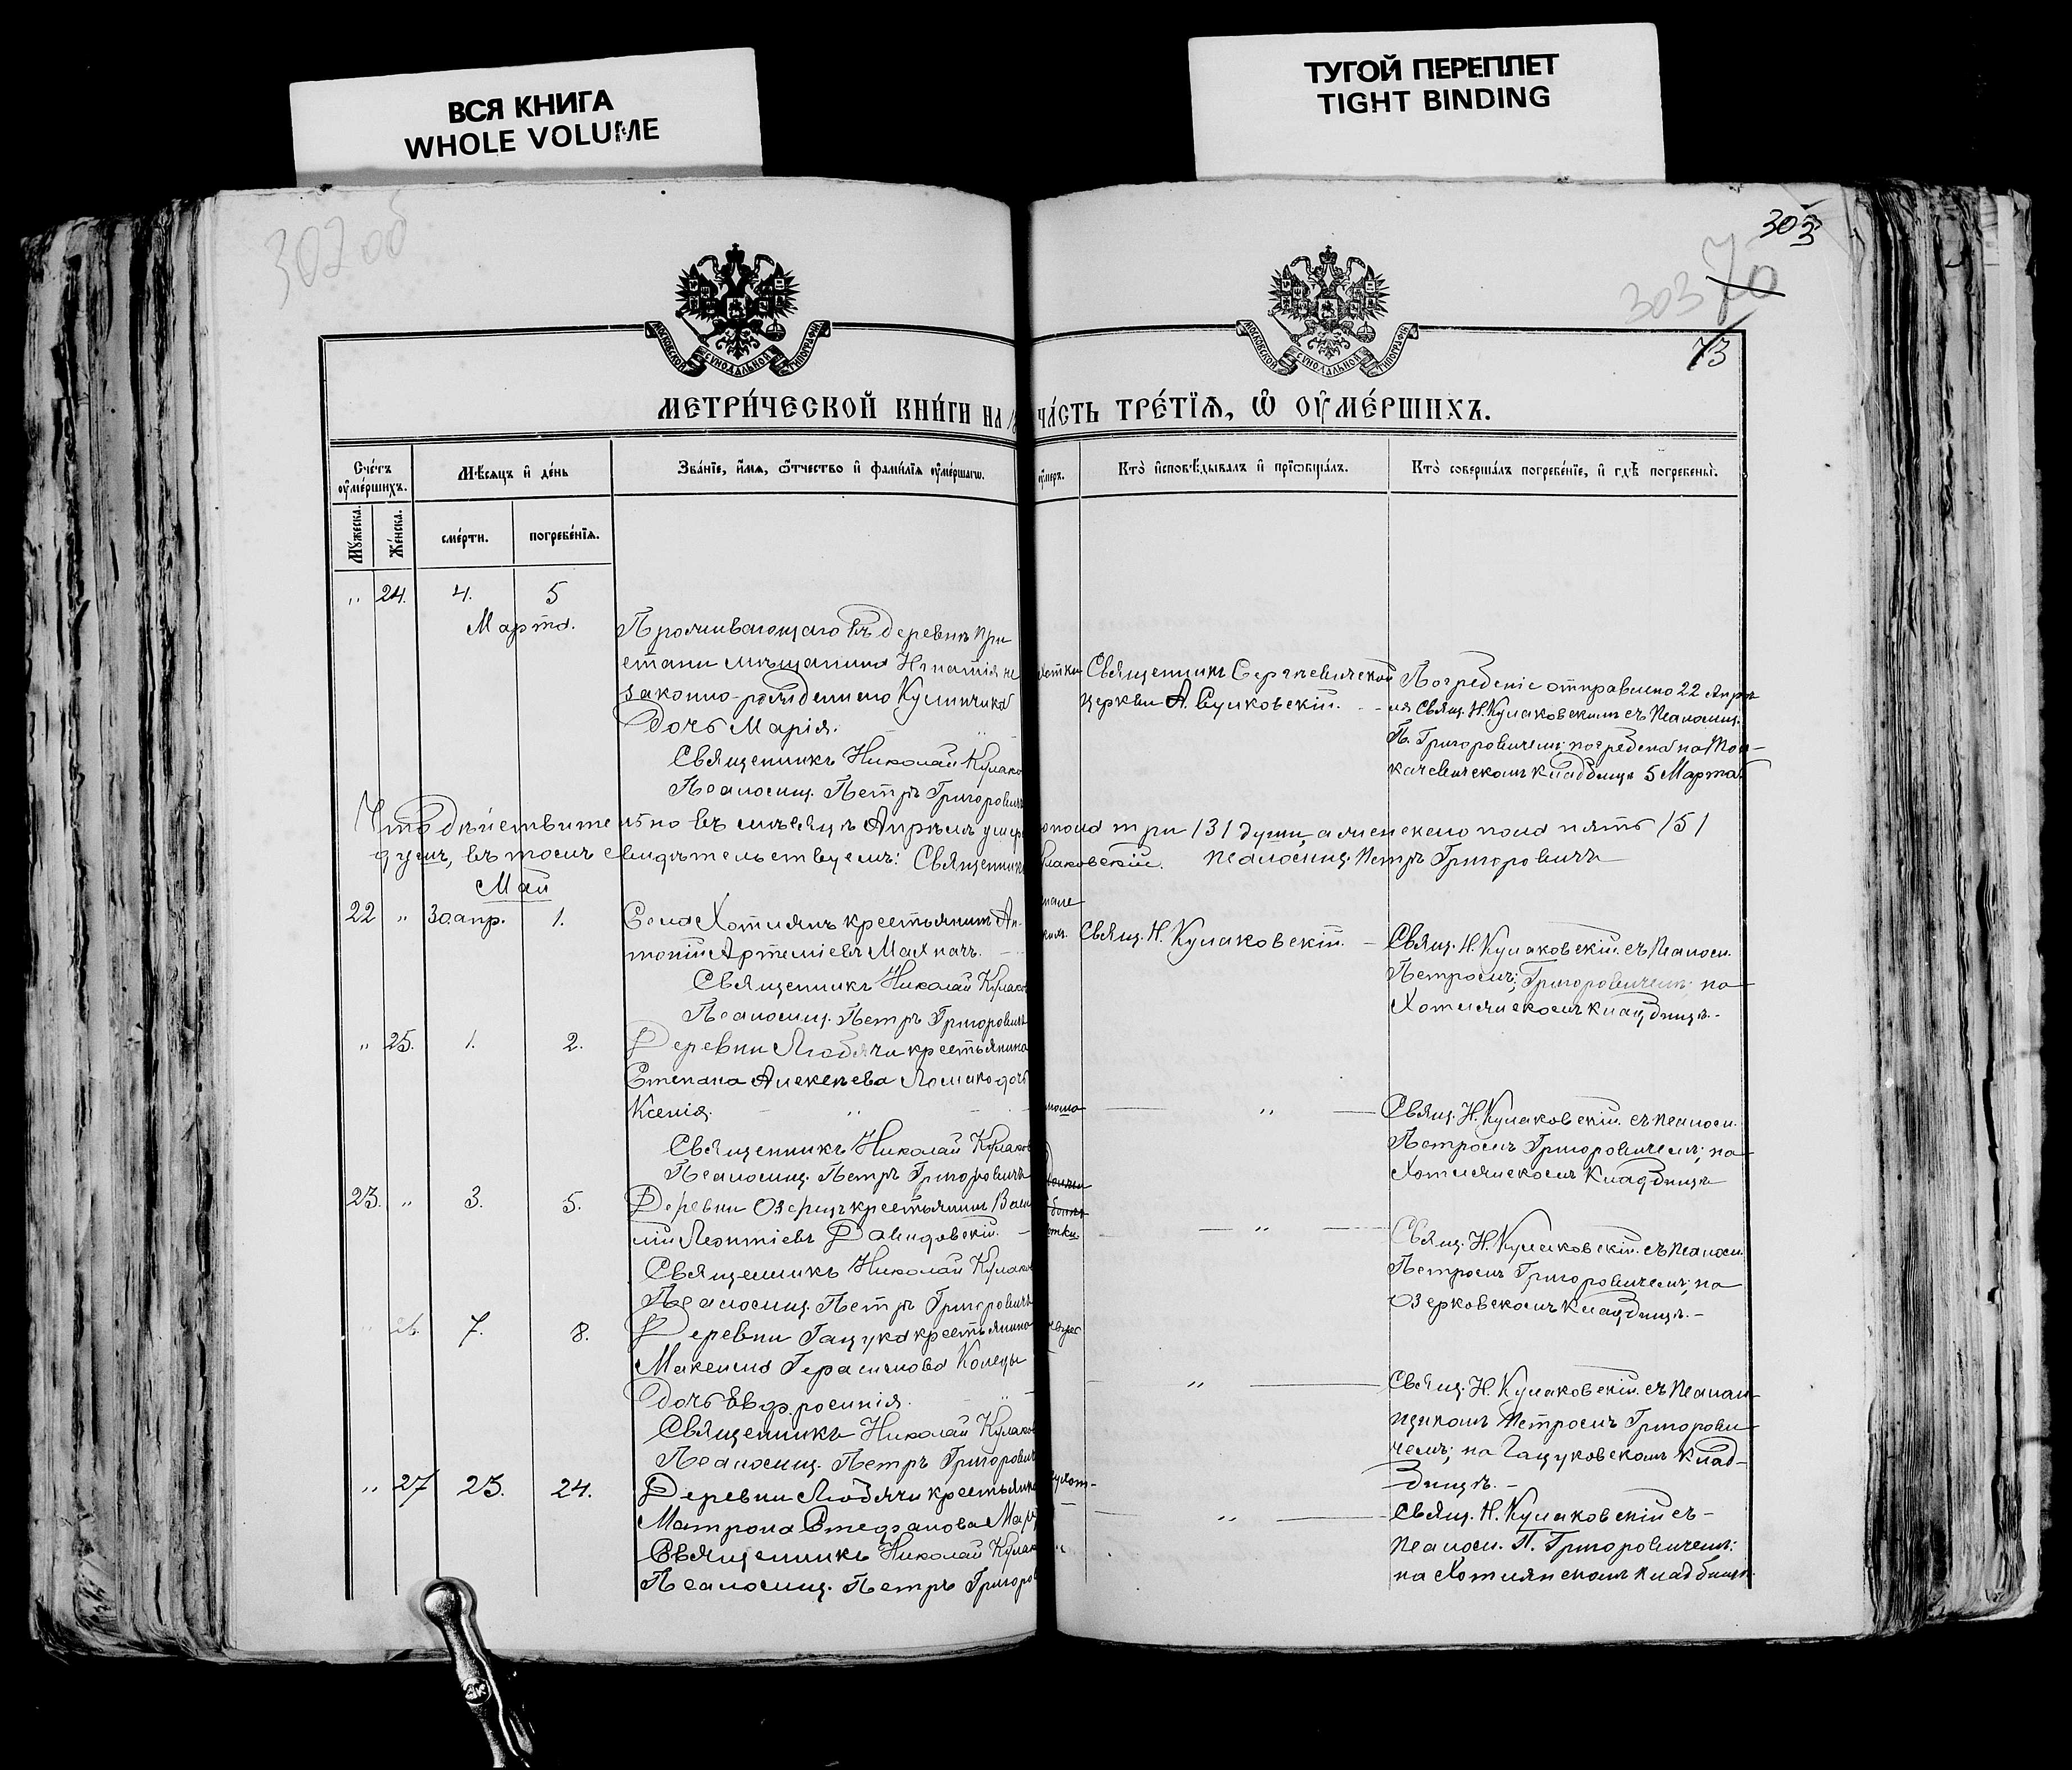 ВСЯ КНИГА
WHOLE VOLUME
ТУГОЙ ПЕРЕПЛЕТ
TIGHT BINDING
302 об
303
303 70
73
МОСКОВСКОЙ СУНОДАЛЬНОЙ ТИПОГРАФІИ
МОСКОВСКОЙ СУНОДАЛЬНОЙ ТИПОГРАФІИ
МЕТРИ́ЧЕСКОЙ КНИ́ГИ НА
ЧА́СТЬ ТРЕ́ТЇѦ, Ѽ ОУ҆МЕ́РШИХЪ.
Сче́тъ оу҆ме́ршихъ.
Мѣ́сяцъ и҆ де́нь
Зва́нїе, и҆́мѧ, ѻ҆́тчество и҆ фами́лїѧ оу҆ме́ршагѡ.
Кто̀ и҆сповѣ́дывалъ и҆ прїѡбща́лъ.
Кто̀ соверша́лъ погребе́нїе, и҆ гдѣ̀ погребены̀.
Му́жеска.
Же́нска.
сме́рти.
погребе́нїѧ.
" 24. 4. 5
Марта.
Проживающаго въ деревнѣ При
стани мѣщанина Игнатія не
законно-рожденнаго Куличика
дочь Марія.
Священникъ Николай Кулако
Псаломщ. Петръ Григоровичъ
Священникъ Сергѣевичской
церкви А. Сулковскій.
Погребеніе отправлено 22 Апрѣ
ля Свящ. Н. Кулаковскимъ съ Псаломщ.
П. Григоровичемъ; погребена на
качевическомъ кладбищѣ 5 Марта
Что дѣйствительно въ мѣсяцѣ Апрѣлѣ умер
пола три /3/ души, а женскаго пола пять /5/
душъ, въ томъ свидѣтельствуемъ: Священникъ
лаковскій. Псаломщ. Петръ Григоровичъ
Май
22 " 30 апр. 1.
Села Хотлянъ крестьянинъ Ан-
тоній Артеміевъ Махначъ.
Священникъ Николай Кулаков
Псаломщ. Петръ Григоровичъ
Свящ. Н. Кулаковскій.
Свящ. Н. Кулаковскій съ Псалом.
Петромъ Григоровичемъ; на
Хотлянскомъ кладбищѣ.
" 25. 1. 2.
Деревни Любячи крестьянина
Степана Алексѣева Ломако дочь
Ксенія.
Священникъ Николай Кулаков
Псаломщ. Петръ Григоровичъ
"
Свящ. Н. Кулаковскій съ псалом.
Петромъ Григоровичемъ; на
Хотлянскомъ кладбищѣ
23. " 3. 5.
Деревни Озерцъ крестьянинъ Васи
лій Леонтіевъ Давидовскій.
Священникъ Николай Кулако
Псаломщ. Петръ Григоровичъ
"
Свящ. Н. Кулаковскій съ Псалом.
Петромъ Григоровичемъ; на
Озерковскомъ кладбищѣ.
" 26. 7. 8.
Деревни Гацука крестьянина
Максима Герасимова Конецы
дочь Евфросинія.
Священникъ Николай Кулаков
Псаломщ. Петръ Григорович
"
Свящ. Н. Кулаковскій съ Псалом-
щикомъ Петромъ Григорови
чемъ; на Гацуковскомъ клад-
бищѣ.
" 27 23. 24.
Деревни Любячи крестьянка
Матрона Стефанова
Священникъ Николай Кулак
Псаломщ. Петръ Григоров
"
Свящ. Н. Кулаковскій съ
псалом. П. Григоровичемъ;
на Хотлянскомъ кладбищѣ.